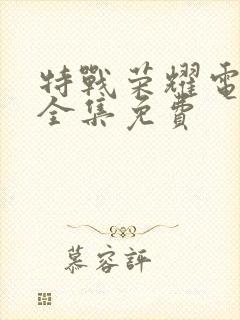 特戰荣耀電
全集免費
慕容評